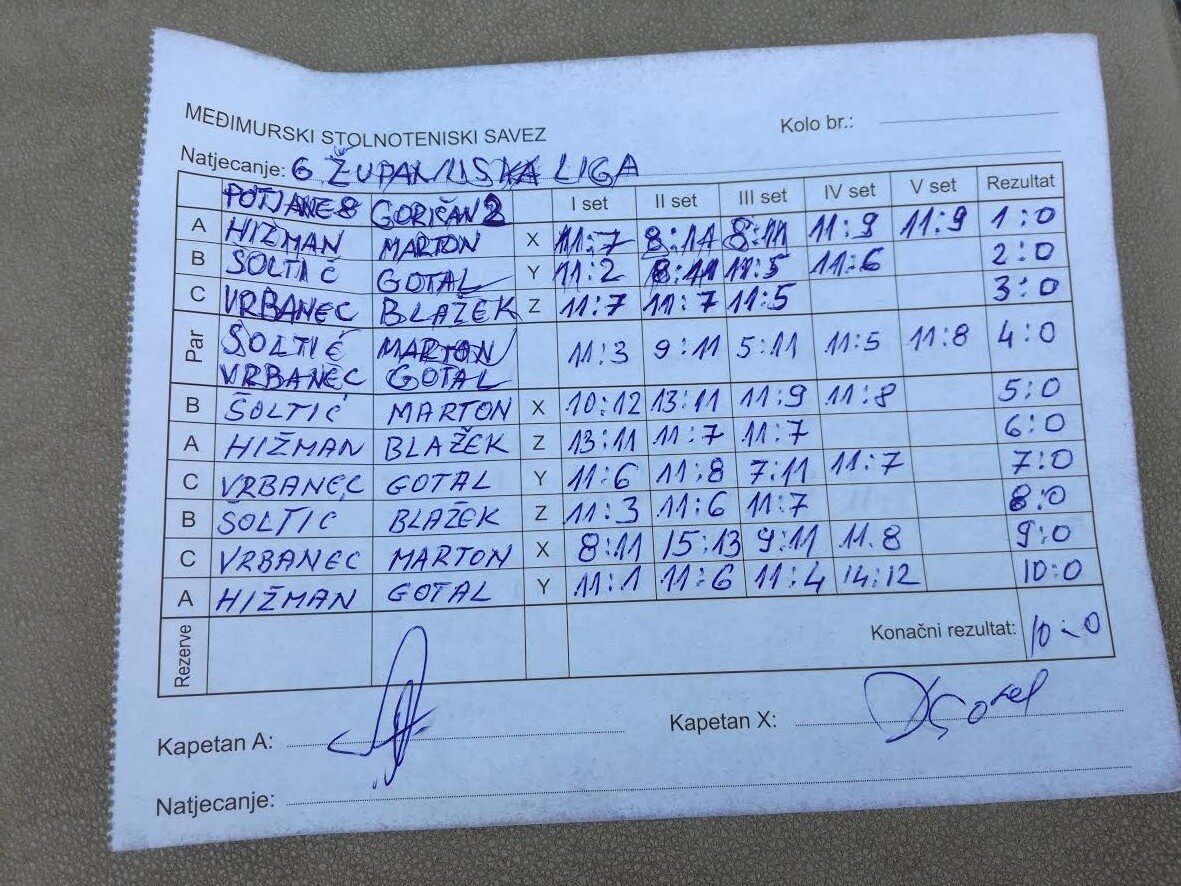 MEĐIMURSKI STOLNOTENISKI SAVEZ
Kolo br.:
Natjecanje: 6 ŽUPANIJSKA LIGA
POTJANE8 GORIČAN 2 I set II set III set IV set V set Rezultat
A HIŽMAN MARTON X 11:7 8:11 8:11 11:9 11:9 1:0
B ŠOLTIĆ GOTAL Y 11:2 8:11 11:5 11:6 2:0
C VRBANEC BLAŽEK Z 11:7 11:7 11:5 3:0
Par ŠOLTIĆ MARTON 11:3 9:11 5:11 11:5 11:8 4:0
VRBANEC GOTAL
B ŠOLTIĆ MARTON X 10:12 13:11 11:9 11:8 5:0
A HIŽMAN BLAŽEK Z 13:11 11:7 11:7 6:0
C VRBANEC GOTAL Y 11:6 11:8 7:11 11:7 7:0
B ŠOLTIĆ BLAŽEK Z 11:3 11:6 11:7 8:0
C VRBANEC MARTON X 8:11 15:13 9:11 11.8 9:0
A HIŽMAN GOTAL Y 11:1 11:6 11:4 14:12 10:0
Rezerve Konačni rezultat: 10-0
Kapetan A:
Kapetan X:
Natjecanje: